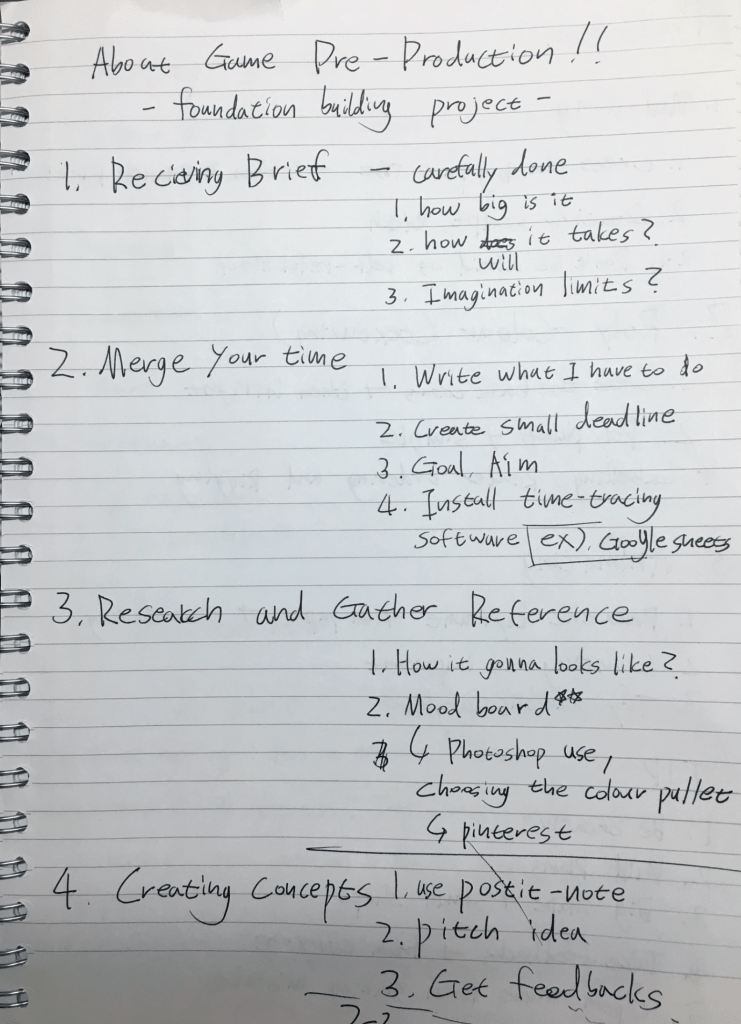 About Game Pre-Production!!
- foundation building project -
1. Reciving Brief - carefully done
1. how big is it
2. how will it takes?
3. Imagination limits?
2. Merge Your time
1. Write what I have to do
2. Create small deadline
3. Goal, Aim
4. Install time-tracing
software ex). Google sheets
3. Research and Gather Reference
1. How it gonna looks like?
2. Mood board**
↳ Photoshop use,
choosing the colour pullet
↳ pinterest
4. Creating Concepts 1. use postit-note
2. pitch idea
3. Get feedbacks